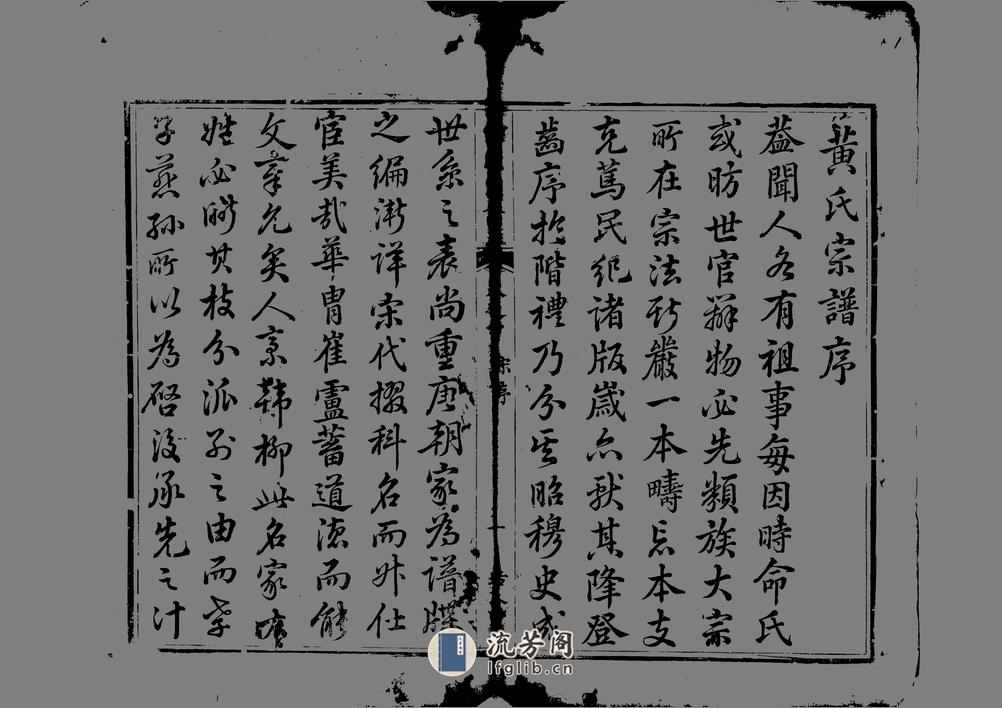 黃氏宗譜序
葢聞人各有祖事每因時命氏
或昉世官辨物必先類族大宗
所在宗法斯嚴一本疇忘本支
克篤民紀諸版歲亦献其降登
齒序於階禮乃分其昭穆史成
世系之表尚重唐朝家為譜牒
之編漸詳宋代掇科名而升仕
宦美哉華胄崔盧蓄道德而能
文章允矣人宗韓柳此名家
姓必聯其枝分派別之由而孝
子慈孫所以為啓後承先之計
宗序
一
流芳阁
lfglib.cn